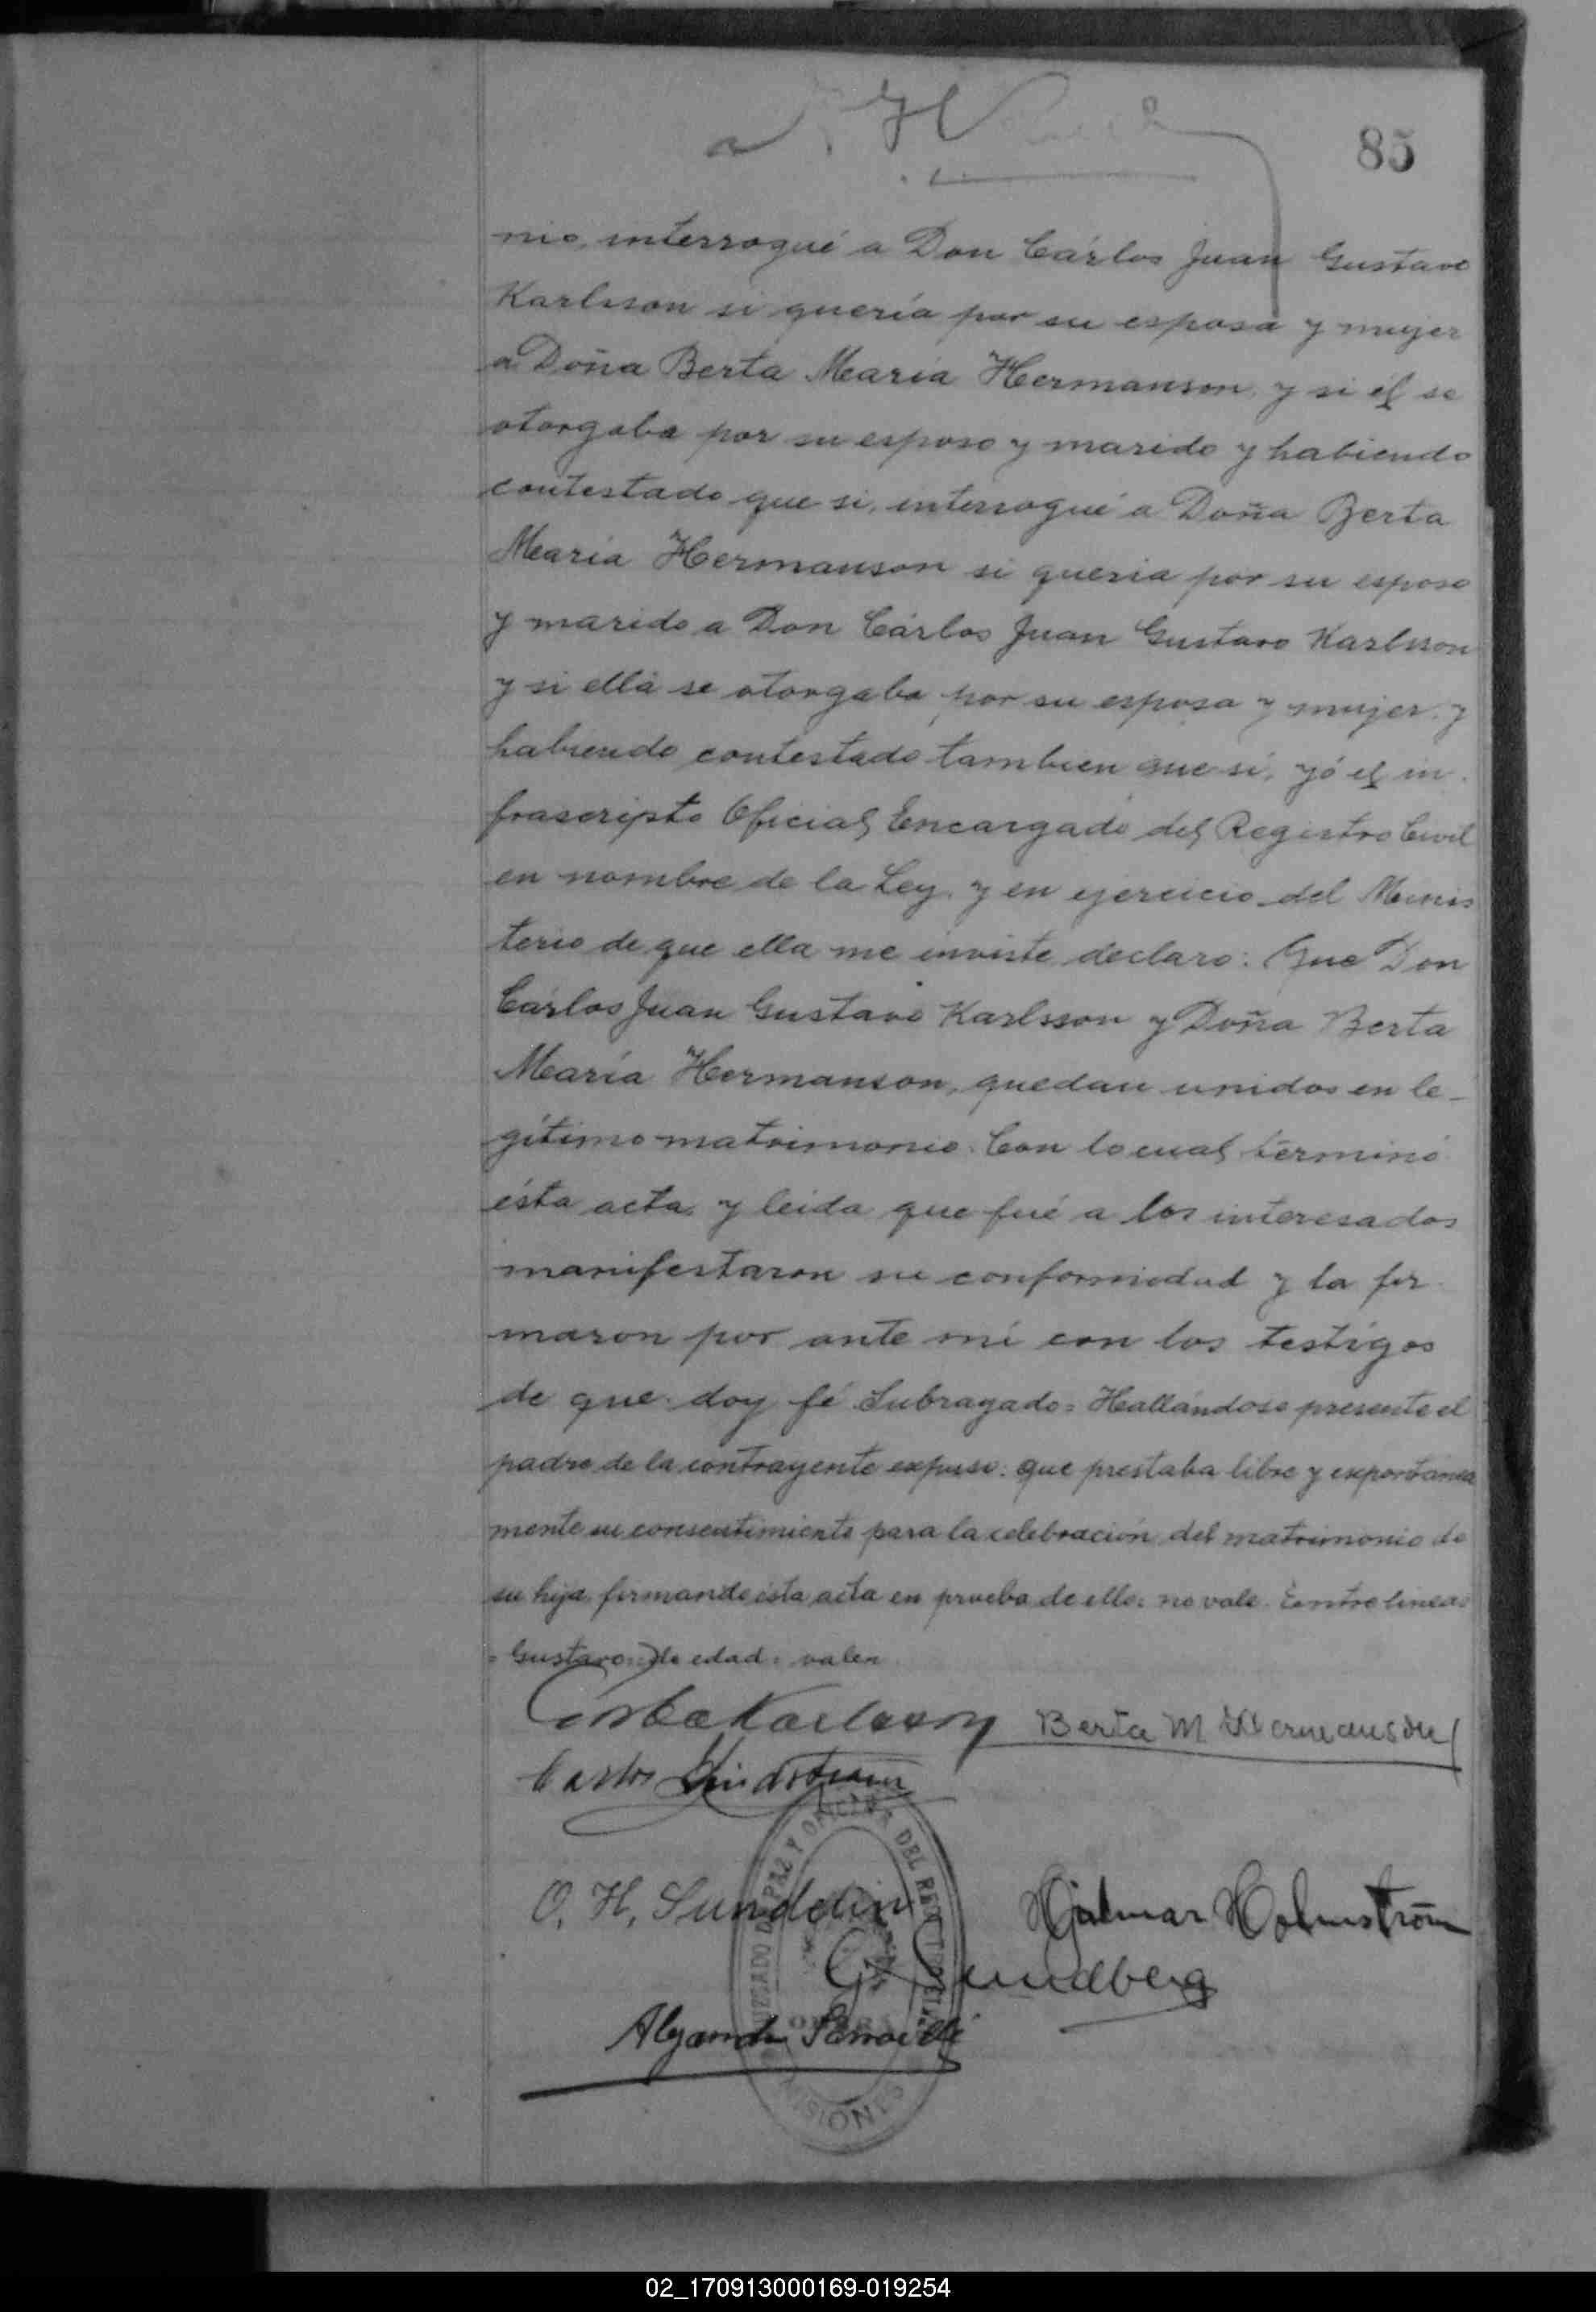 85
nio, interrogué a Don Cárlos Juan Gustavo
Karlsson si quería por su esposa y mujer
a Doña Berta María Hermanson, y si él se
otorgaba por su esposo y marido y habiendo
contestado que si, interrogué a Doña Berta
María Hermanson si queria por su esposo
y marido a Don Cárlos Juan Gustavo Karlsson
y si ella se otorgaba por su esposa y mujer, y
habiendo contestado tambien que si, yó el in
frascripto Oficial Encargado del Registro Civil
en nombre de la Ley, y en ejercicio del Minis
terio de que ella me inviste declaro: Que Don
Cárlos Juan Gustavo Karlsson y Doña Berta
María Hermanson, quedan unidos en le-
gítimo matrimonio. Con lo cual terminó
ésta acta, y leida que fué a los interesados
manifestaron su conformidad y la fir
maron por ante mí con los testigos
de que doy fé Subrayado= Hallándose presente el
padre de la contrayente expuso: que prestaba libre y expontánea
mente su consentimiento para la celebración del matrimonio de
su hija, firmando ésta acta en prueba de ello: no vale. Entre lineas
= Gustavo: de edad: valen
Karlsson Berta M Hermanson
Carlos Lindstrom
O. H. Sundelin Hjalmar Holmström
G. Sundberg
JUZGADO DE PAZ Y OFICINA DEL REGISTRO CIVIL
MISIONES
02_170913000169-019254